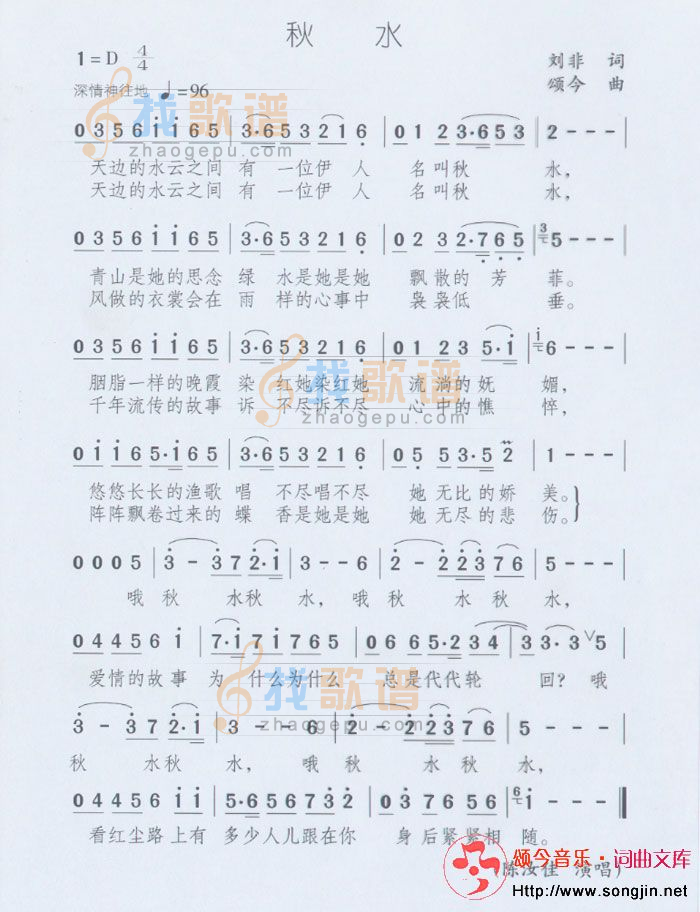 秋 水
1=D 4/4
刘非 词
深情神往地 ♩=96
颂今 曲
0 3 5 6 i i 6 5 | 3·6 5 3 2 1 6 | 0 1 2 3·6 5 3 | 2 - - - |
天边的水云之间 有 一位伊 人 名叫秋 水,
天边的水云之间 有 一位伊 人 名叫秋 水,
0 3 5 6 i i 6 5 | 3·6 5 3 2 1 6 | 0 2 3 2·7 6 5 | 3 5 - - - |
青山是她的思念 绿 水是她是她 飘散的 芳 菲。
风做的衣裳会在 雨 样的心事中 袅袅低 垂。
0 3 5 6 i i 6 5 | 3·6 5 3 2 1 6 | 0 1 2 3 5·i | i 6 - - - |
胭脂一样的晚霞 染 红她染红她 流淌的妩 媚,
千年流传的故事 诉 不尽诉不尽 心中的憔 悴,
0 i i 6 5·i 6 5 | 3·6 5 3 2 1 6 | 0 5 5 3·5 2 | 1 - - - |
悠悠长长的渔歌 唱 不尽唱不尽 她 无比的娇 美。
阵阵飘卷过来的 蝶 香是她是她 她 无尽的悲 伤。
0 0 0 5 | 3 - 3 7 2·i | 3 - - 6 | 2 - 2 2 3 7 6 | 5 - - - |
哦 秋 水秋 水, 哦 秋 水 秋 水,
0 4 4 5 6 i | 7·i 7 i 7 6 5 | 0 6 6 5·2 3 4 | 3 3·3 ∨ 5 |
爱情的故事 为 什么为什么 总是代代轮 回? 哦
3 - 3 7 2·i | 3 - - 6 | 2 - 2 2 3 7 6 | 5 - - - |
秋 水秋 水, 哦 秋 水 秋 水,
0 4 4 5 6 i i | 5·6 5 6 7 3 2 | 0 3 7 6 5 6 | 6 i - - - ‖
看红尘路上有 多少人儿跟在你 身后紧紧相 随。
(陈汝佳 演唱)
找歌谱
zhaogepu.com
找歌谱
zhaogepu.com
找歌谱
zhaogepu.com
颂今音乐·词曲文库
Http://www.songjin.net